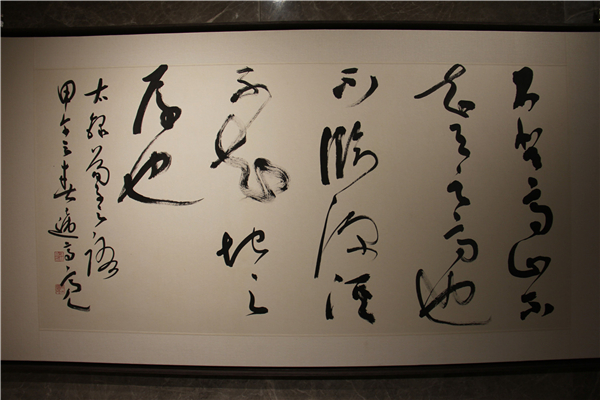 不登高山不
知天之高也
不臨深溪
不知地之
厚也
右録荀子
甲午之春